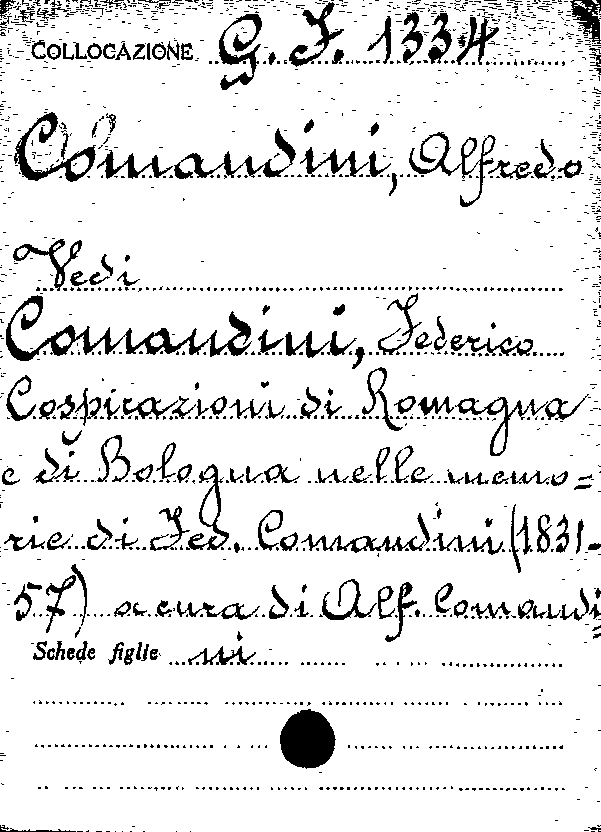 COLLOCAZIONE G. F. 1334
Comandini, Alfredo
Vedi
Comandini, Federico
Cospirazioni di Romagna
e di Bologna nelle memo=
rie di Fed. Comandini (1831-
57) a cura di Alf. Comandi=
Schede figlie ni